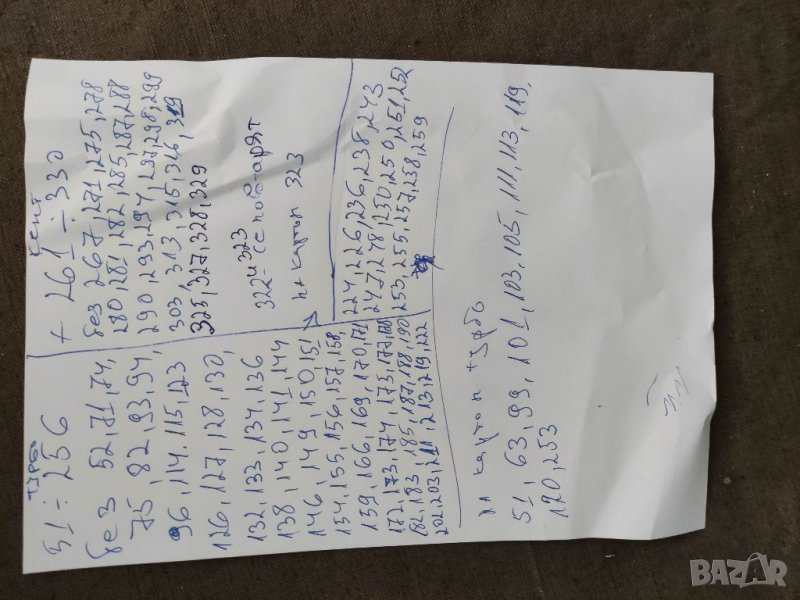 турбо
51 ÷ 256
без 52, 71, 74,
75, 82, 93, 94
96, 114, 115, 123
126, 127, 128, 130,
132, 133, 134, 136
138, 140, 141, 144
146, 149, 150, 151
154, 155, 156, 157, 158,
159, 166, 169, 170, 171
172, 173, 174, 175, 177, 178
182, 183, 185, 187, 188, 190
202, 203, 211, 213, 219, 222
224, 226, 236, 238, 243
247, 248, 250, 250, 251, 252
253, 255, 257, 258, 259
кент
+ 261 ÷ 330
без 267, 271, 275, 278
280, 281, 282, 285, 287, 288
290, 293, 294, 297, 298, 299
303 313, 315, 316, 319
325, 327, 328, 329
322 и 323
на картон 323
на картон турбо
51, 63, 99, 101, 103, 105, 111, 113, 119,
120, 253
BAZAR